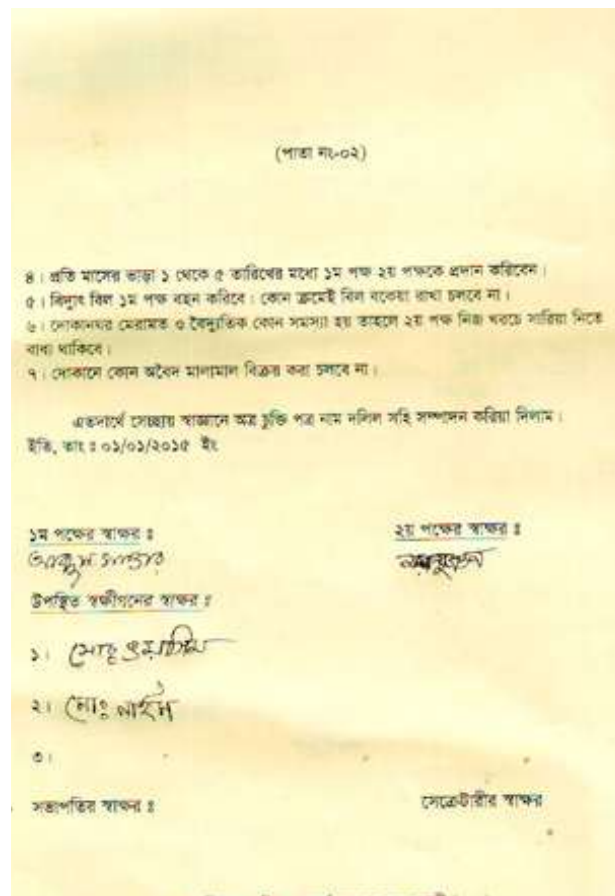 (পাতা নং-০২)
৪। প্রতি মাসের ভাড়া ১ থেকে ৫ তারিখের মধ্যে ১ম পক্ষ ২য় পক্ষকে প্রদান করিবেন।
৫। বিদ্যুৎ বিল ১ম পক্ষ বহন করিবে। কোন ক্রমেই বিল বকেয়া রাখা চলবে না।
৬। দোকানঘর মেরামত ও বৈদ্যুতিক কোন সমস্যা হয় তাহলে ২য় পক্ষ নিজ খরচে সারিয়া নিতে
বাধ্য থাকিবে।
৭। দোকানে কোন অবৈদ মালামাল বিক্রয় করা চলবে না।
এতদার্থে সেচ্ছায় স্বাজ্ঞানে অত্র চুক্তি পত্র নাম দলিল সহি সম্পাদন করিয়া দিলাম।
ইতি, তাং ঃ ০১/০১/২০১৫ ইং
১ম পক্ষের স্বাক্ষর ঃ ২য় পক্ষের স্বাক্ষর ঃ
উপস্থিত স্বক্ষীগনের স্বাক্ষর ঃ
১।
২। মোঃ নাইম
৩।
সভাপতির স্বাক্ষর ঃ সেক্রেটারীর স্বাক্ষর